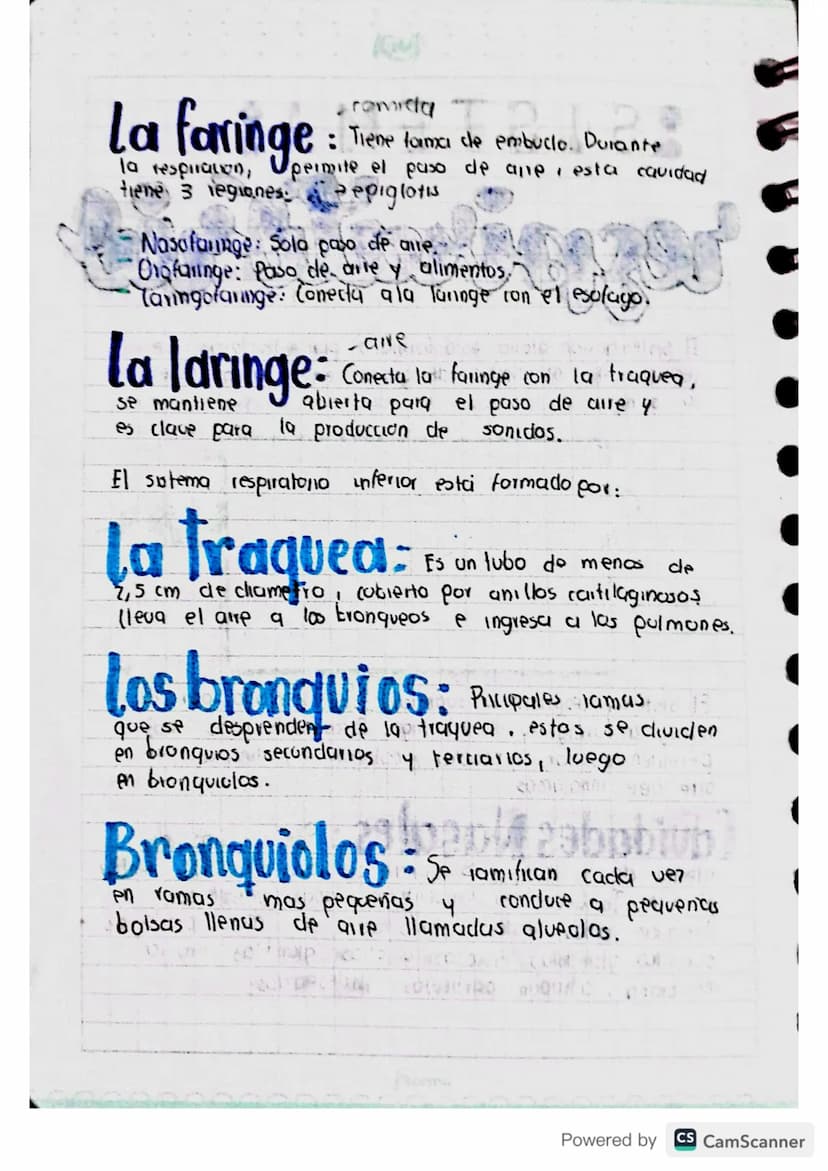 comida
La faringe : Tiene forma de embudo. Durante
la respiración, permite el paso de aire, esta cavidad
tiene 3 regiones: → epiglotis
- Nasofaringe: Solo paso de aire.
- Orofaringe: Paso de aire y alimentos.
- Laringofaringe: Conecta a la laringe con el esofago.
- aire
La laringe: Conecta la faringe con la traquea,
se mantiene abierta para el paso de aire y
es clave para la producción de sonidos.
El sistema respiratorio inferior está formado por:
La traquea: Es un tubo de menos de
2,5 cm de diametro, cubierto por anillos cartilaginosos
lleva el aire a los bronqueos e ingresa a los pulmones.
Los bronquios: Principales ramas
que se desprenden de la traquea, estos se dividen
en bronquios secundarios y terciarios, luego
en bronquiolos.
Bronquiolos: Se ramifican cada vez
en ramas mas pequeñas y conduce a pequeñas
bolsas llenas de aire llamadas alveolos.
Powered by CS CamScanner